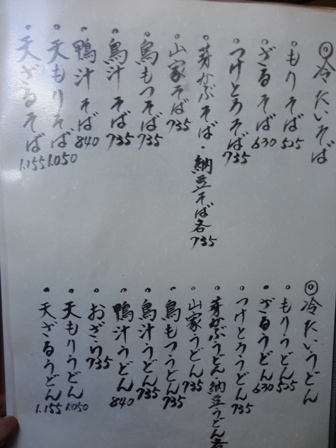 ◎冷たいそば
•もりそば 525
•ざるそば 630
•つけとろそば 735
•芽かぶそば・納豆そば各 735
•山家そば 735
•鳥もつそば 735
•鳥汁そば 735
•鴨汁そば 840
•天もりそば 1.050
•天ざるそば 1.155
◎冷たいうどん
•もりうどん 525
•ざるうどん 630
•つけとろうどん 735
•芽かぶうどん 納豆うどん各
•山家うどん 735
•鳥もつうどん 735
•鳥汁うどん 735
•鴨汁うどん 840
•おざら 735
•天もりうどん 1.050
•天ざるうどん 1.155